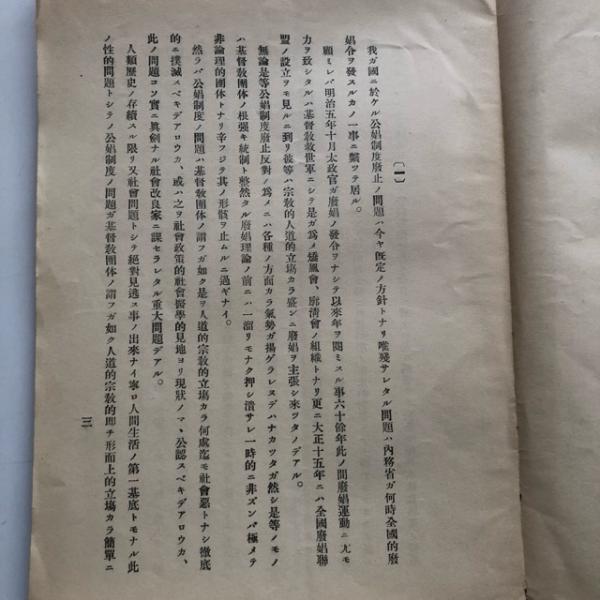 〔一〕
我ガ國ニ於ケル公娼制度廢止ノ問題ハ今ヤ旣定ノ方針トナリ唯殘サレタル問題ハ內務省ガ何時全國的廢
娼令ヲ發スルカノ一事ニ繫ツテ居ル。
顧ミレバ明治五年十月太政官ガ廢娼ノ發令ヲナシテ以來年ヲ閱ミスル事六十餘年此ノ間廢娼運動ニ尤モ
力ヲ致シタルハ基督敎救世軍ニシテ是ガ爲メ矯風會、廓淸會ノ組織トナリ更ニ大正十五年ニハ全國廢娼聯
盟ノ設立ヲモ見ルニ到リ彼等ハ宗敎的人道的立塲カラ盛ンニ廢娼ヲ主張シ來ツタノデアル。
無論是等公娼制度廢止反對ノ爲メニハ各種ノ方面カラ氣勢ガ揚ゲラレヌデハナカツタガ然シ是等ノモノ
ハ基督敎團体ノ根强キ統制ト整然タル廢娼理論ノ前ニハ一溜リモナク押シ潰サレ一時的ニ非ズンバ極メテ
非論理的團体トナリ辛フジテ其ノ形骸ヲ止ムルニ過ギナイ。
然ラバ公娼制度ノ問題ハ基督敎團体ノ謂フガ如ク是ヲ人道的宗敎的立塲カラ何處迄モ社會惡トナシ徹底
的ニ撲滅スベキデアロウカ、或ハ之ヲ社會政策的社會醫學的見地ヨリ現狀ノマヽ公認スベキデアロウカ、
此ノ問題コソ實ニ眞劍ナル社會改良家ニ課セラレタル重大問題デアル。
人類歷史ノ存續スル限リ又社會問題トシテ絕對見逃ス事ノ出來ナイ寧ロ人間生活ノ第一基底トモナル此
ノ性的問題トシテノ公娼制度ノ問題ガ基督敎團体ノ謂フガ如ク人道的宗敎的卽チ形而上的立塲カラ簡單ニ
三